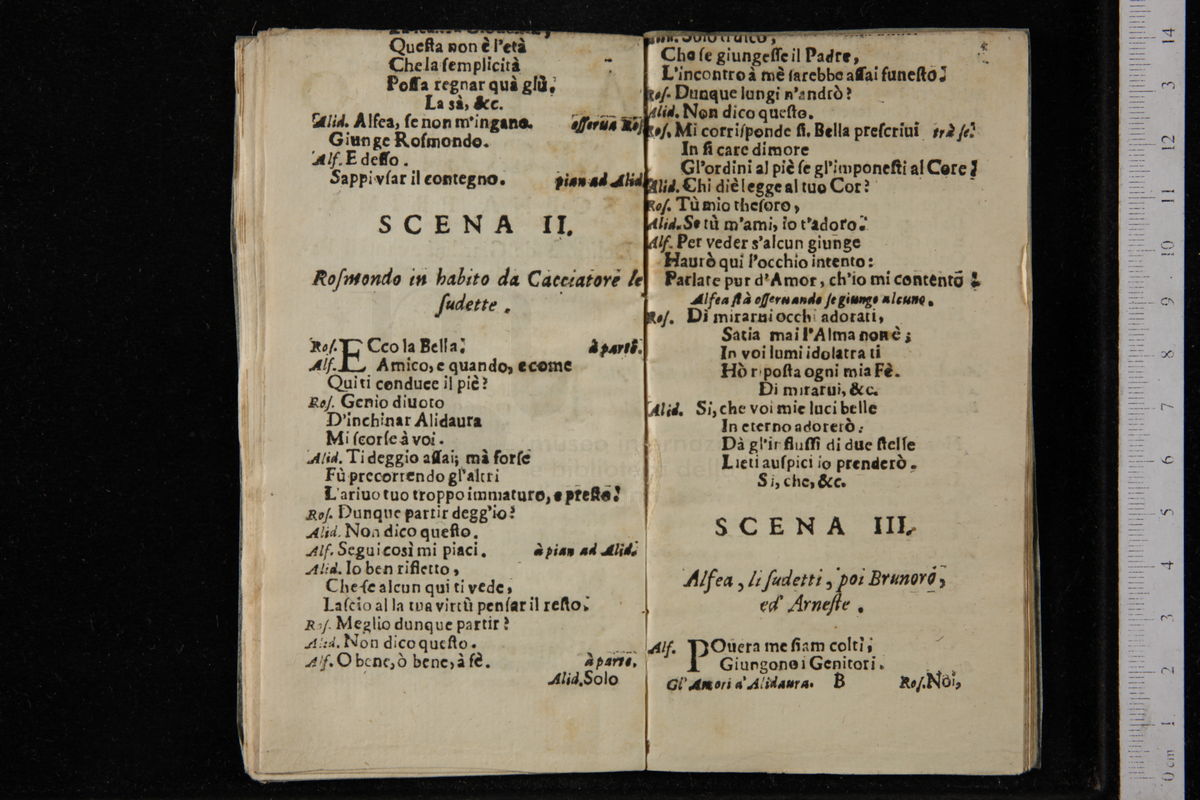 Questa non è l'età
Che la semplicità
Possa regnar quà giù.
La sà, &c.
Alid. Alfea, se non m'ingano. osserua Ros
Giunge Rosmondo.
Alf. E desso.
Sappi vsar il contegno. pian ad Alid.
SCENA II.
Rosmondo in habito da Cacciatore le
sudette.
Ros. ECco la Bella. à parte.
Alf. Amico, e quando, e come
Qui ti conduce il piè?
Ros. Genio diuoto
D'inchinar Alidaura
Mi scorse à voi.
Alid. Ti deggio assai; mà forse
Fù precorrendo gl'altri
L'ariuo tuo troppo immaturo, e presto!
Ros. Dunque partir degg'io?
Alid. Non dico questo.
Alf. Segui così mi piaci. à pian ad Alid.
Alid. Io ben rifletto,
Che se alcun qui ti vede,
Lascio al la tua virtù pensar il resto.
Ros. Meglio dunque partir?
Alid. Non dico questo.
Alf. O bene, ò bene, à fè. à parte.
Alid. Solo
Solo ti dico,
Che se giungesse il Padre,
L'incontro à mè sarebbe assai funesto!
Ros. Dunque lungi n'andrò?
Alid. Non dico questo.
Ros. Mi corrisponde si. Bella prescriui trà se.
In si care dimore
Gl'ordini al piè se gl'imponesti al Core!
Alid. Chi diè legge al tuo Cor?
Ros. Tù mio thesoro,
Alid. Se tù m'ami, io t'adoro.
Alf. Per veder s'alcun giunge
Haurò qui l'occhio intento:
Parlate pur d'Amor, ch'io mi contento!
Alfea stà osseruando se giunge alcuno.
Ros. Di mirarui occhi adorati,
Satia mai l'Alma non è;
In voi lumi idolatra ti
Hò riposta ogni mia Fè.
Di mirarui, &c.
Alid. Si, che voi mie luci belle
In eterno adorerò:
Dà gl'influssi di due stelle
Lieti auspici io prenderò.
Si, che, &c.
SCENA III.
Alfea, li sudetti, poi Brunoro,
ed' Arneste.
Alf. POuera me siam colti;
Giungono i Genitori.
Gl'Amori d'Alidaura. B Ros. Noi,